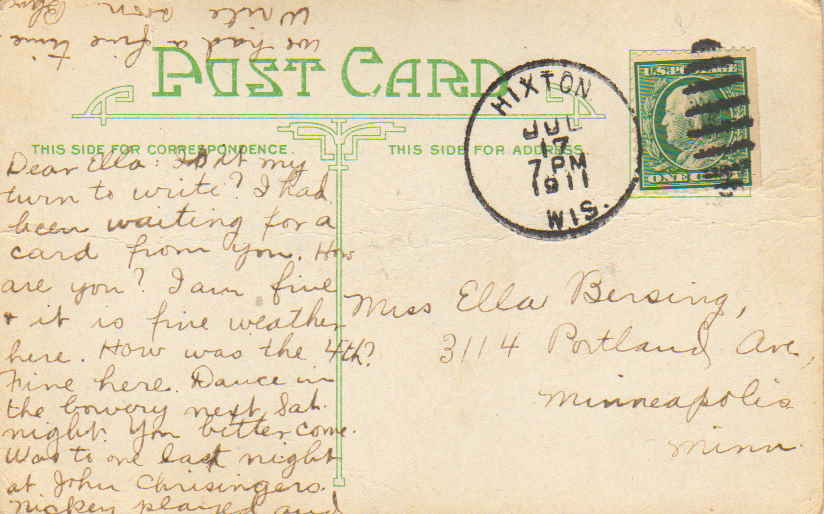 POST CARD
THIS SIDE FOR CORRESPONDENCE.
THIS SIDE FOR ADDRESS.
HIXTON
JUL
17
7 PM
1911
WIS.
U.S. POSTAGE
ONE CENT
Dear Ella: Isn't it my
turn to write? I had
been waiting for a
card from you. How
are you? I am fine
+ it is fine weather
here. How was the 4th?
Fine here. Dance in
the bowery next Sat.
night. You bitter come.
Was to one last night
at John Chrisingers.
Nickey played and
we had a fine time
Write soon
Miss Ella Bersing,
3114 Portland Ave,
Minneapolis
Minn.